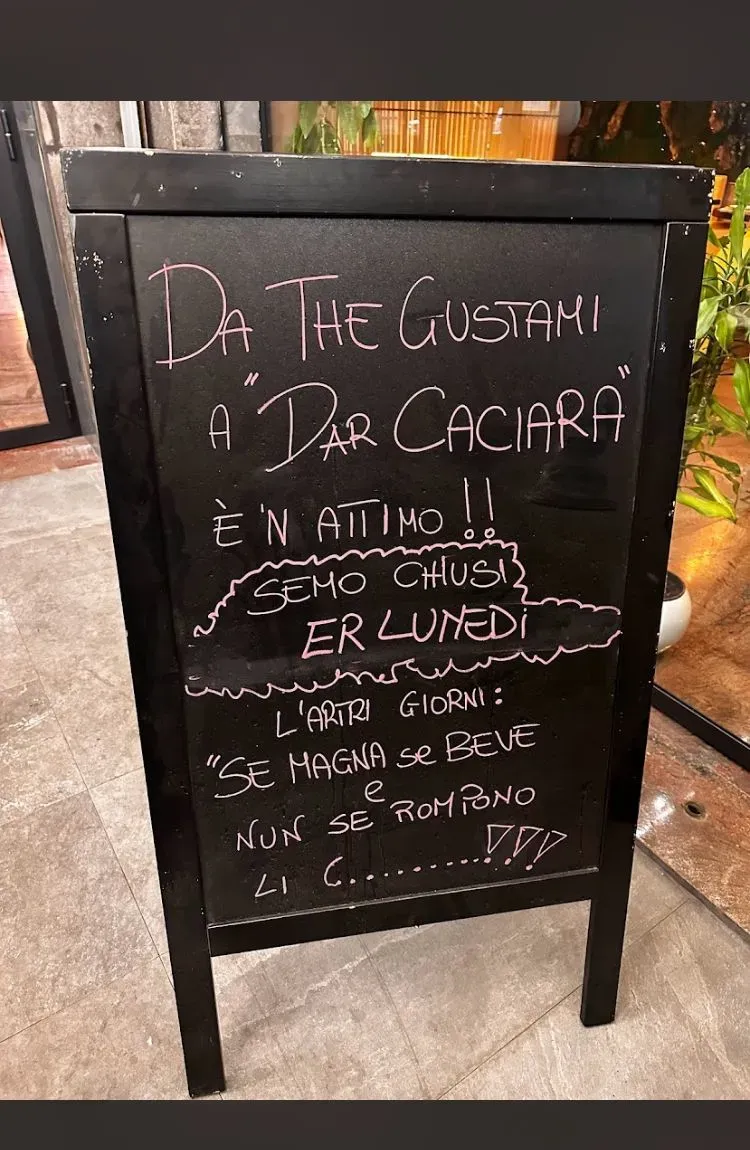 DA THE GUSTAMI
A "DAR CACIARA"
È 'N ATTIMO !!
SEMO CHIUSI
ER LUNEDÌ
L'ARTRI GIORNI:
"SE MAGNA se BEVE
e
NUN SE ROMPONO
LI C..........!!!